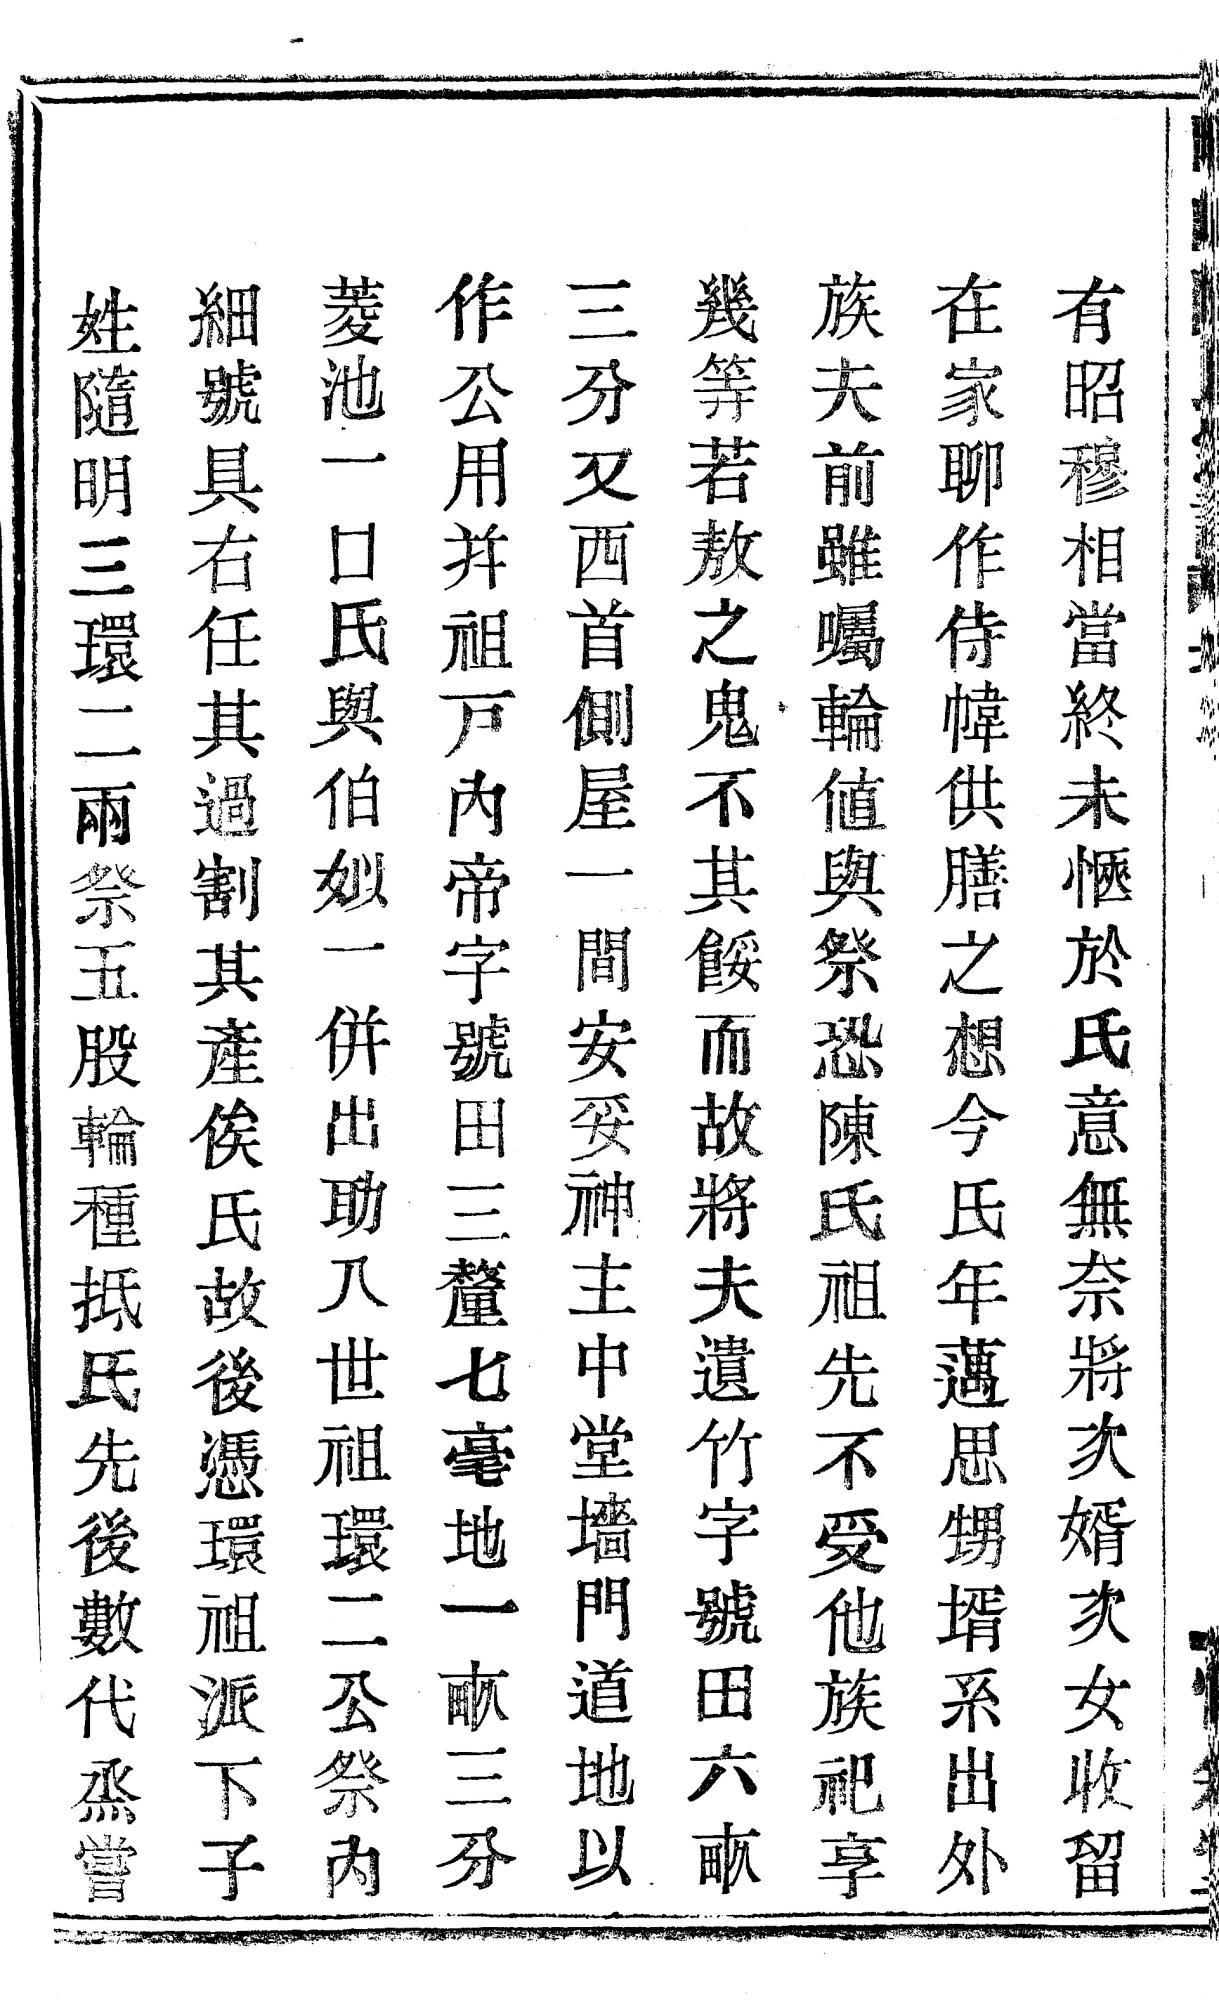 有昭穆相當終未愜於氏意無奈將次婿次女收留
在家聊作侍幃供膳之想今氏年邁思甥壻系出外
族夫前雖囑輪値與祭恐陳氏祖先不受他族祀享
幾等若敖之鬼不其餒而故將夫遺竹字號田六畝
三分又西首側屋一間安妥神主中堂墻門道地以
作公用并祖戸內帝字號田三釐七毫地一畝三分
菱池一口氏與伯姒一併出助八世祖環二公祭內
細號具右任其過割其產俟氏故後憑環祖派下子
姓隨明三環二兩祭五股輪種抵氏先後數代烝嘗